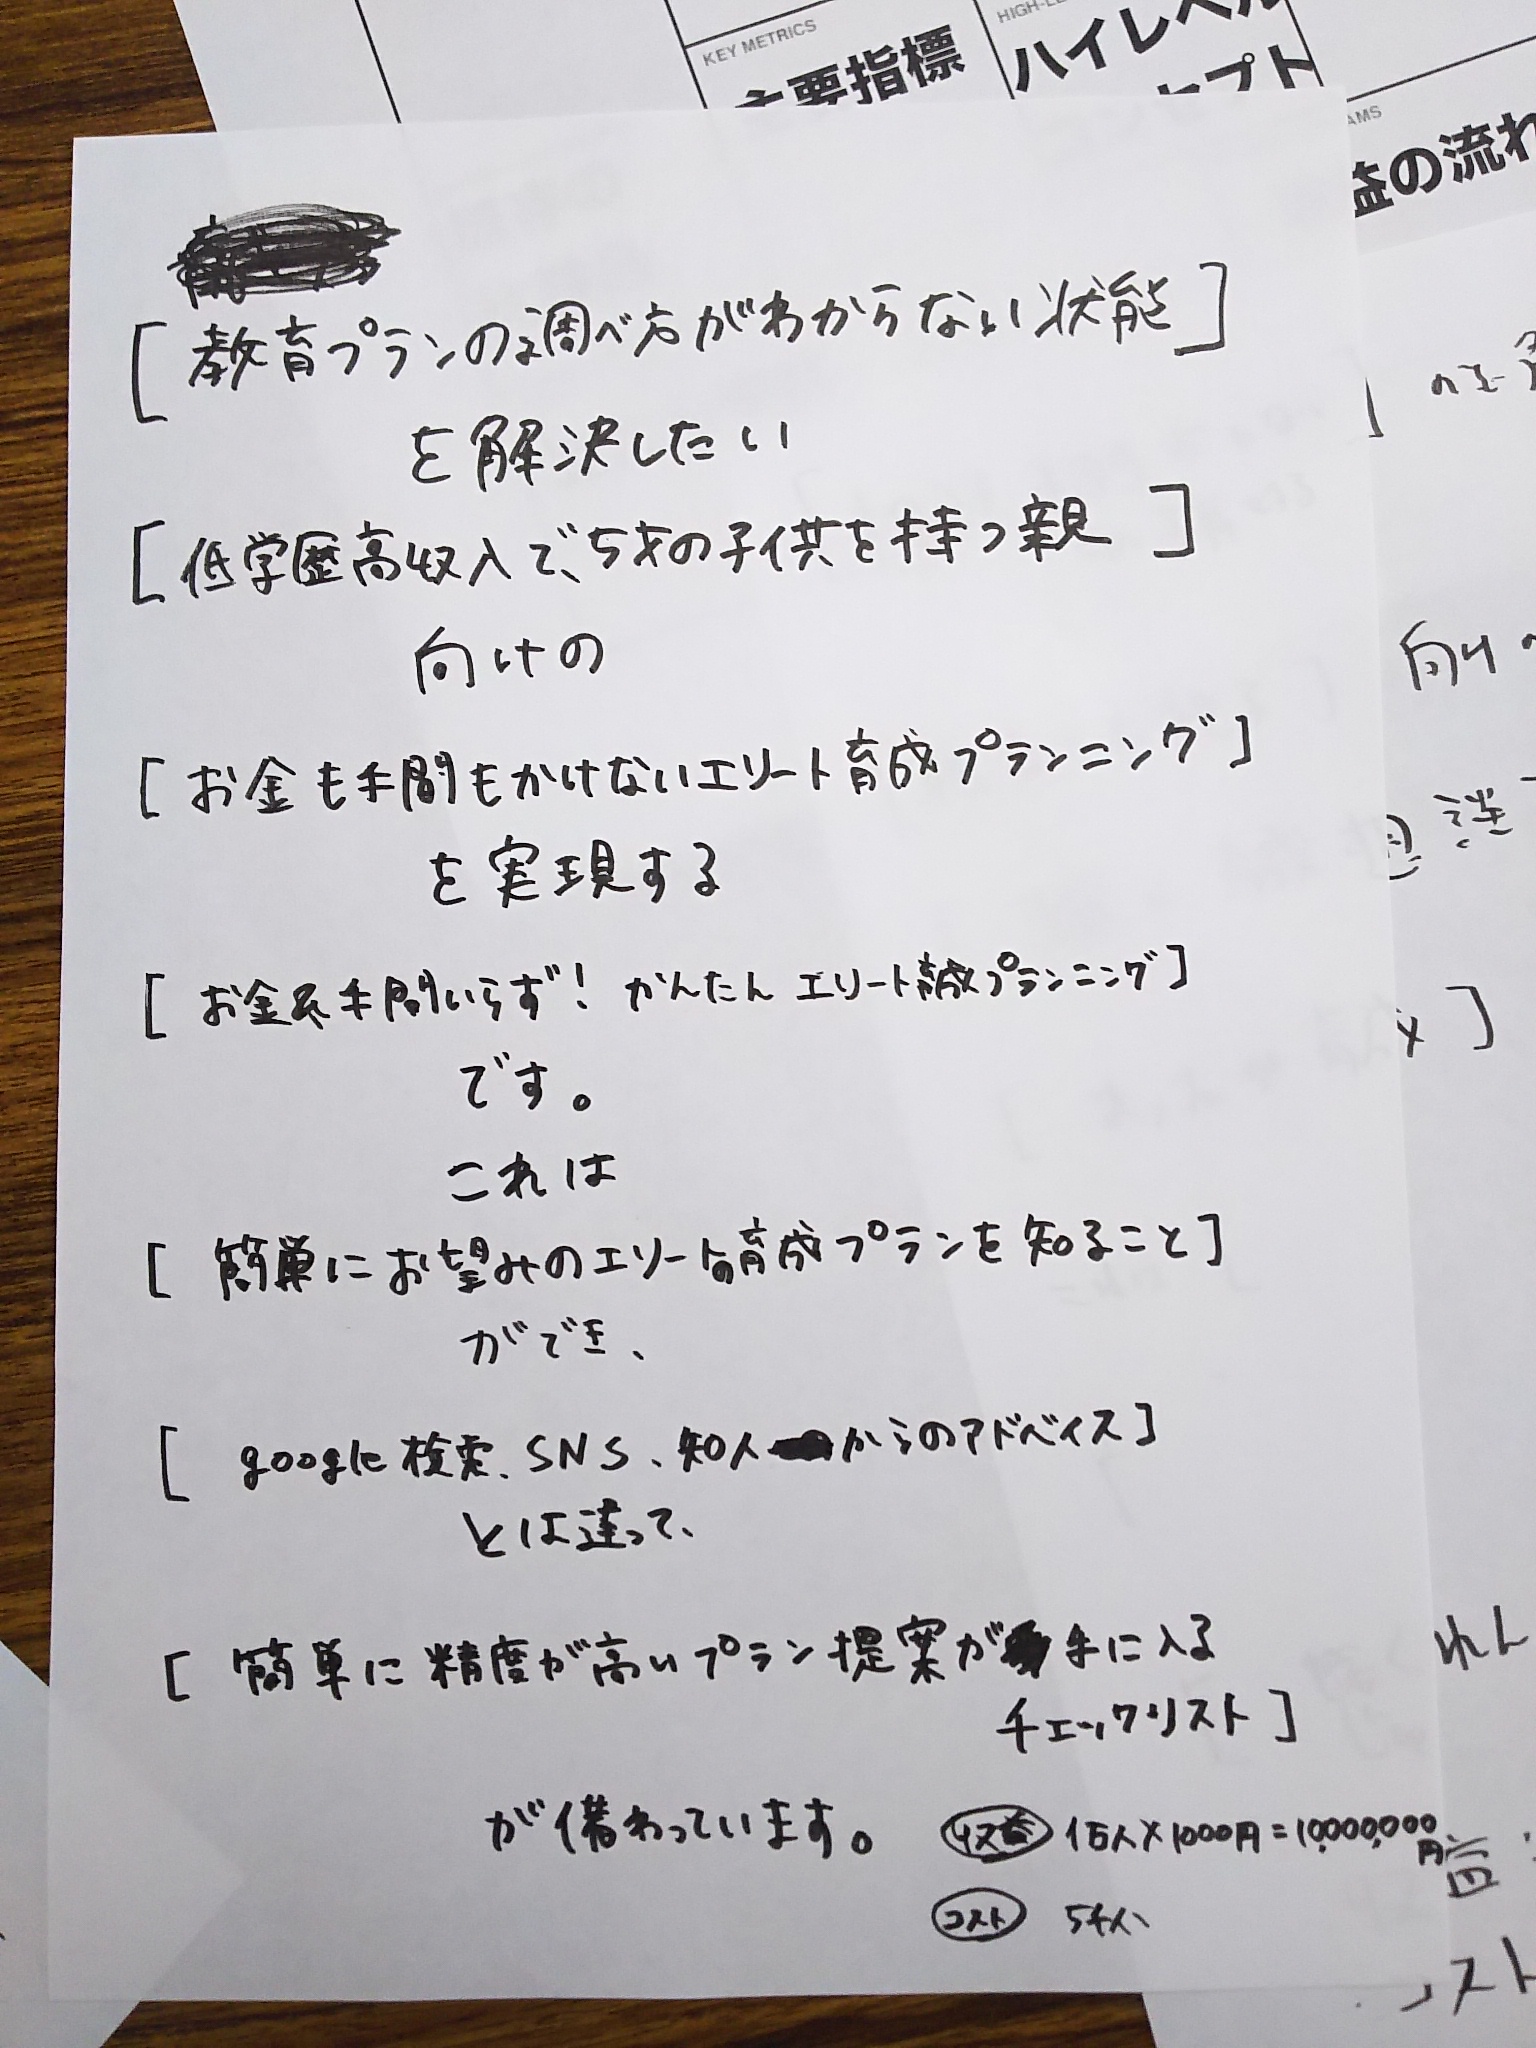 KEY METRICS
主要指標
HIGH-LE
ハイレベル
セプト
AMS
益の流れ
[教育プランの調べ方がわからない状態]
を解決したい
[低学歴高収入で、5才の子供を持つ親]
向けの
[お金も手間もかけないエリート育成プランニング]
を実現する
[お金も手間いらず！かんたんエリート育成プランニング]
です。
これは
[簡単にお望みのエリート育成プランを知ること]
ができ、
[google検索、SNS、知人からのアドバイス]
とは違って、
[簡単に精度が高いプラン提案が手に入る
チェックリスト]
が備わっています。
収益 1万人×1000円=10,000,000円
コスト
向け
れん
益
スト